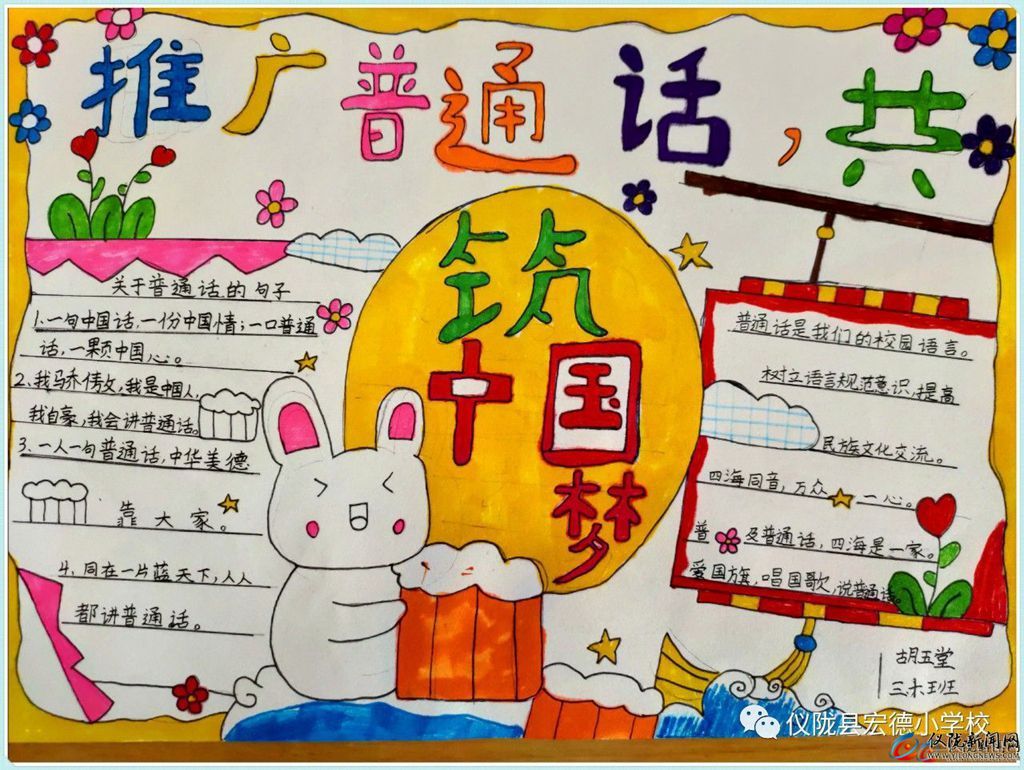 推广普通话，共
筑
中国
梦
关于普通话的句子
1.一句中国话,一份中国情;一口普通
话,一颗中国心。
2.我骄傲,我是中国人,
我自豪,我会讲普通话。
3.一人一句普通话,中华美德
靠大家。
4.同在一片蓝天下,人人
都讲普通话。
普通话是我们的校园语言。
树立语言规范意识,提高
民族文化交流。
四海同音,万众一心。
普及普通话,四海是一家。
爱国旗,唱国歌,说普通话
胡五堂
仪陇县宏德小学校
仪陇新闻网
WWW.YILONGNEWS.COM